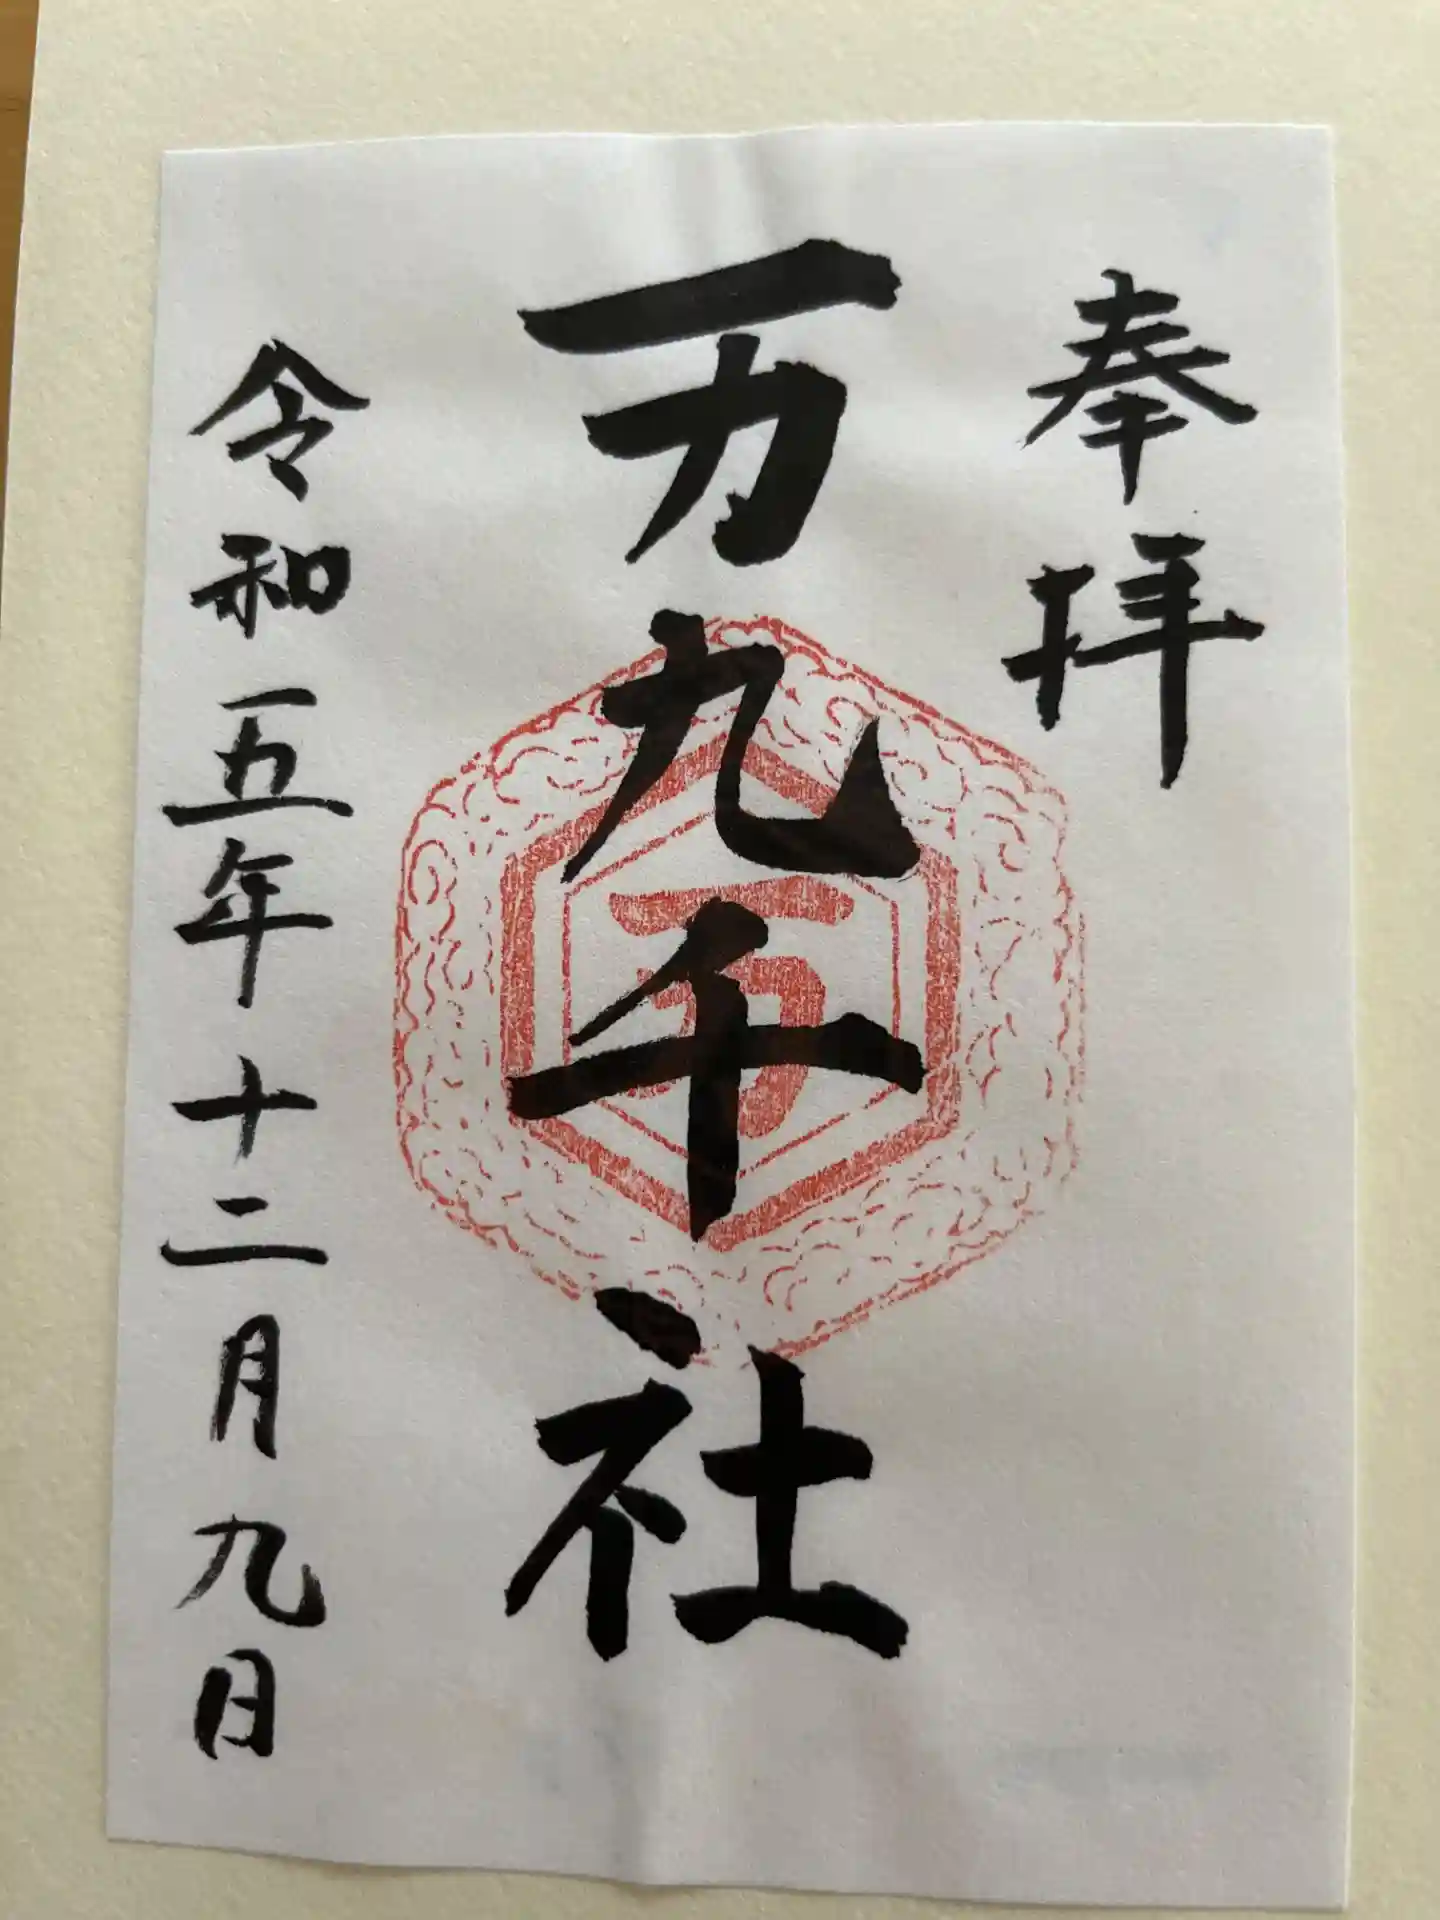 奉拝
万九千社
令和五年十二月九日